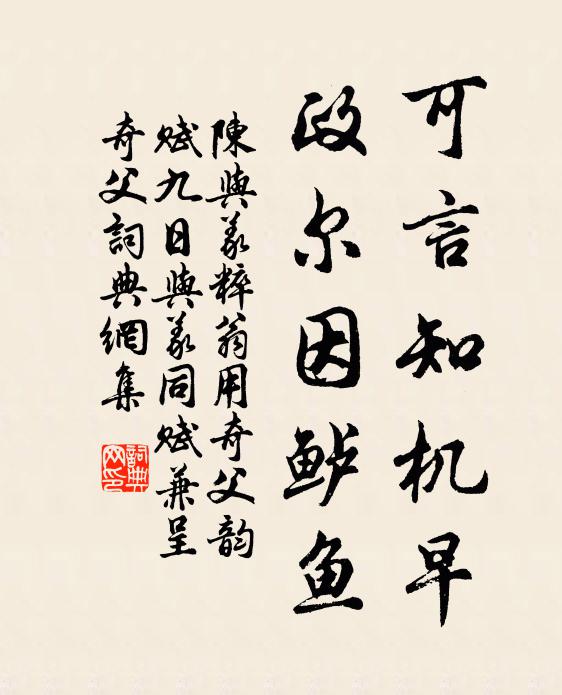 可言知机早
政尔因鲈鱼
陳與義粹翁用奇父韵
賦九日與義同賦兼呈
奇父詞典網集
詞典
网印